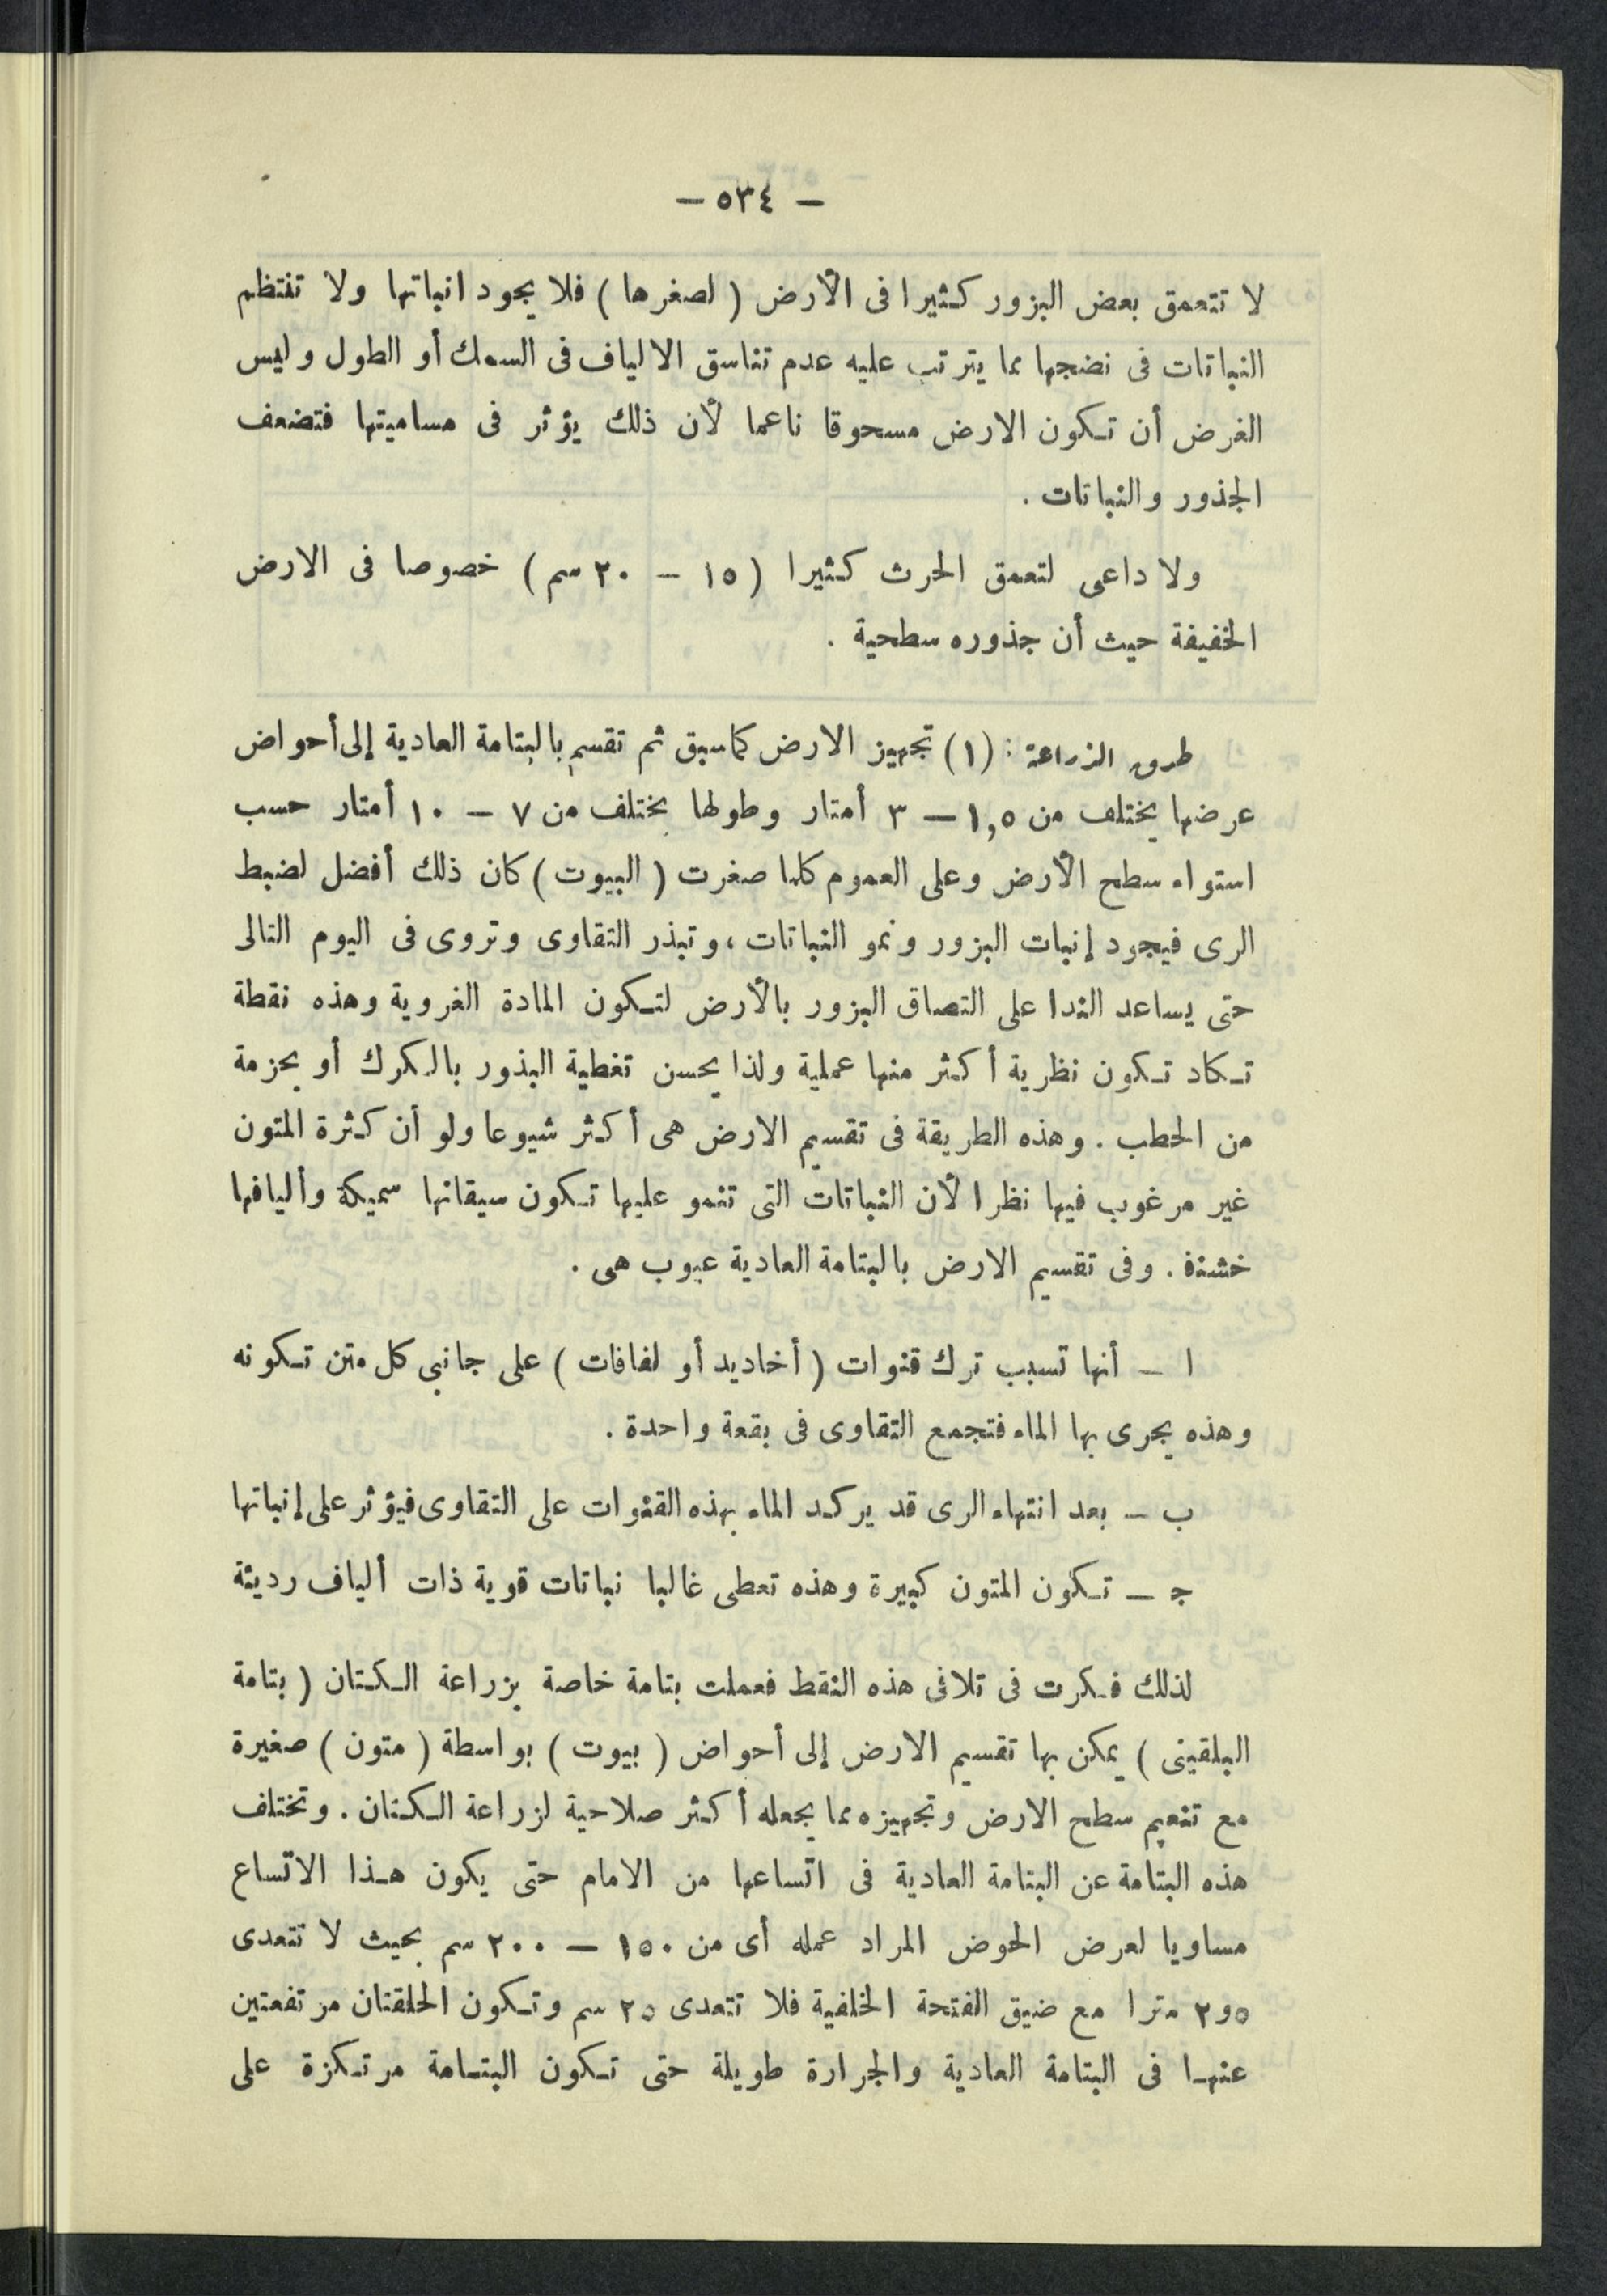 — ٥٣٤ —
لا تتعمق بعض البزور كثيرا فى الأرض ( لصغرها ) فلا يجود انباتها ولا تنتظم
النباتات فى نضجها مما يترتب عليه عدم تناسق الالياف فى السمك أو الطول وليس
الغرض أن تكون الارض مسحوقا ناعما لأن ذلك يؤثر فى مساميتها فتضعف
الجذور والنباتات .
ولا داعى لتعمق الحرث كثيرا ( ١٥ – ٢٠ سم ) خصوصا فى الارض
الخفيفة حيث أن جذوره سطحية .
طرق الزراعة : (١) تجهيز الارض كما سبق ثم تقسم بالبتامة العادية إلى أحواض
عرضها يختلف من ١,٥ — ٣ أمتار وطولها يختلف من ٧ – ١٠ أمتار حسب
استواء سطح الأرض وعلى العموم كلما صغرت ( البيوت ) كان ذلك أفضل لضبط
الرى فيجود إنبات البزور ونمو النباتات ، وتبذر التقاوى وتروى فى اليوم التالى
حتى يساعد الندا على التصاق البزور بالأرض لتكون المادة الغروية وهذه نقطة
تكاد تكون نظرية أكثر منها عملية ولذا يحسن تغطية البذور بالكرك أو بحزمة
من الحطب . وهذه الطريقة فى تقسيم الارض هى أكثر شيوعا ولو أن كثرة المتون
غير مرغوب فيها نظرا لأن النباتات التى تنمو عليها تكون سيقانها سميكة وأليافها
خشنة . وفى تقسيم الارض بالبتامة العادية عيوب هى .
ا – أنها تسبب ترك قنوات ( أخاديد أو لفافات ) على جانبى كل متن تكونه
وهذه يجرى بها الماء فتجمع التقاوى فى بقعة واحدة .
ب – بعد انتهاء الرى قد يركد الماء بهذه القنوات على التقاوى فيؤثر على إنباتها
ج – تكون المتون كبيرة وهذه تعطى غالبا نباتات قوية ذات ألياف رديئة
لذلك فكرت فى تلافى هذه النقط فعملت بتامة خاصة بزراعة الكتان ( بتامة
البلقينى ) يمكن بها تقسيم الارض إلى أحواض ( بيوت ) بواسطة ( متون ) صغيرة
مع تنعيم سطح الارض وتجهيزه مما يجعله أكثر صلاحية لزراعة الكتان . وتختلف
هذه البتامة عن البتامة العادية فى اتساعها من الامام حتى يكون هذا الاتساع
مساويا لعرض الحوض المراد عمله أى من ١٥٠ — ٢٠٠ سم بحيث لا تتعدى
٥و٢ مترا مع ضيق الفتحة الخلفية فلا تتعدى ٢٥ سم وتكون الحلقتان مرتفعتين
عنها فى البتامة العادية والجرارة طويلة حتى تكون البتامة مرتكزة على